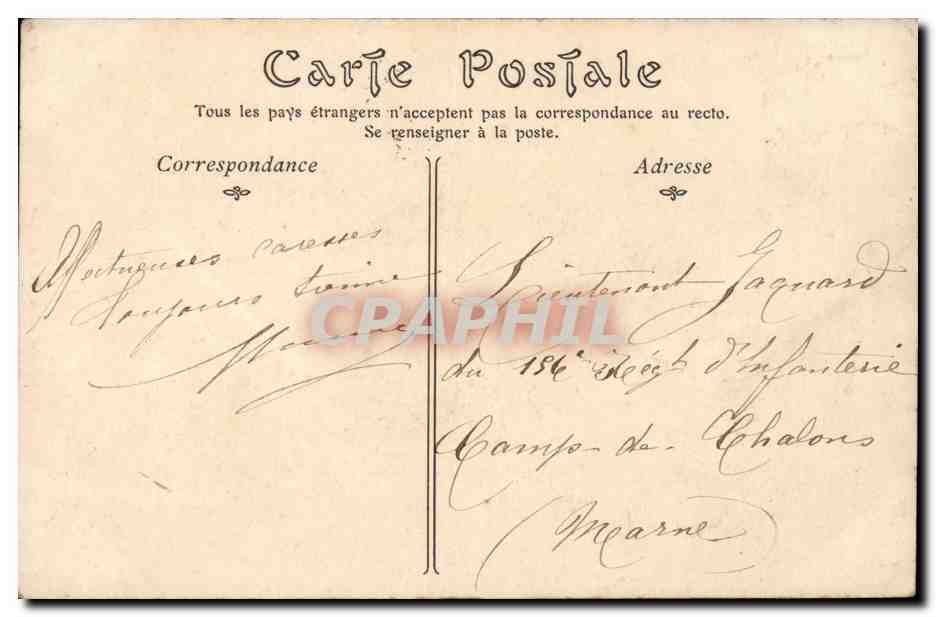 Carte Postale
Tous les pays étrangers n'acceptent pas la correspondance au recto.
Se renseigner à la poste.
Correspondance
Adresse
caresses
Toujours tienne
Lieutenant Jaquard
du 156e Régt d'Infanterie
Camp-de-Chalons
(Marne)
CPAPHIL